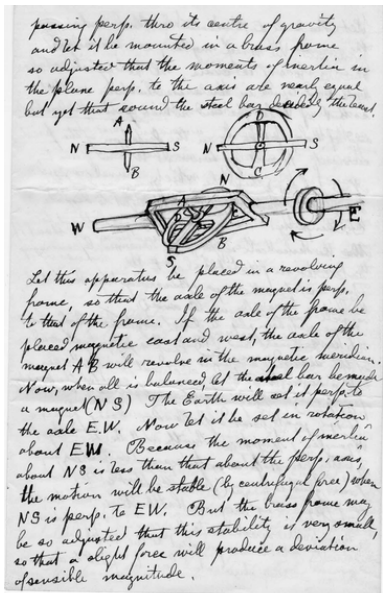 passing perp. thro its centre of gravity
and let it be mounted in a brass frame
so adjusted that the moments of inertia in
the plane perp. to the axis are nearly equal
but yet that round the steel bar decidedly the least.
A
N S N S
B C
W A N E
B
S
Let this apparatus be placed in a revolving
frame, so that the axle of the magnet is perp.
to that of the frame. If the axle of the frame be
placed magnetic east and west, the axle of the
magnet AB will revolve in the magnetic meridian.
Now, when all is balanced, let the steel bar be made
a magnet (NS) The Earth will set it perp. to
the axle E.W. Now let it be set in rotation
about EW. Because the moment of inertia
about NS is less than that about the perp. axis,
the motion will be stable (by centrifugal force) when
NS is perp. to EW. But the brass frame may
be so adjusted that this stability is very small,
so that a slight force will produce a deviation
of sensible magnitude.